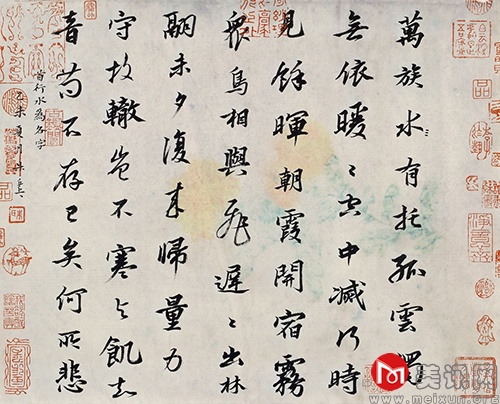 萬族水有托孤雲獨
無依暖〻空中滅何時
見餘暉朝霞開宿霧
眾鳥相與飛遲〻出林
翮未夕復来歸量力
守故轍豈不寒与飢知
音苟不存已矣何所悲
首行水為各字
乙未夏月
美讯网
www.meixun.org